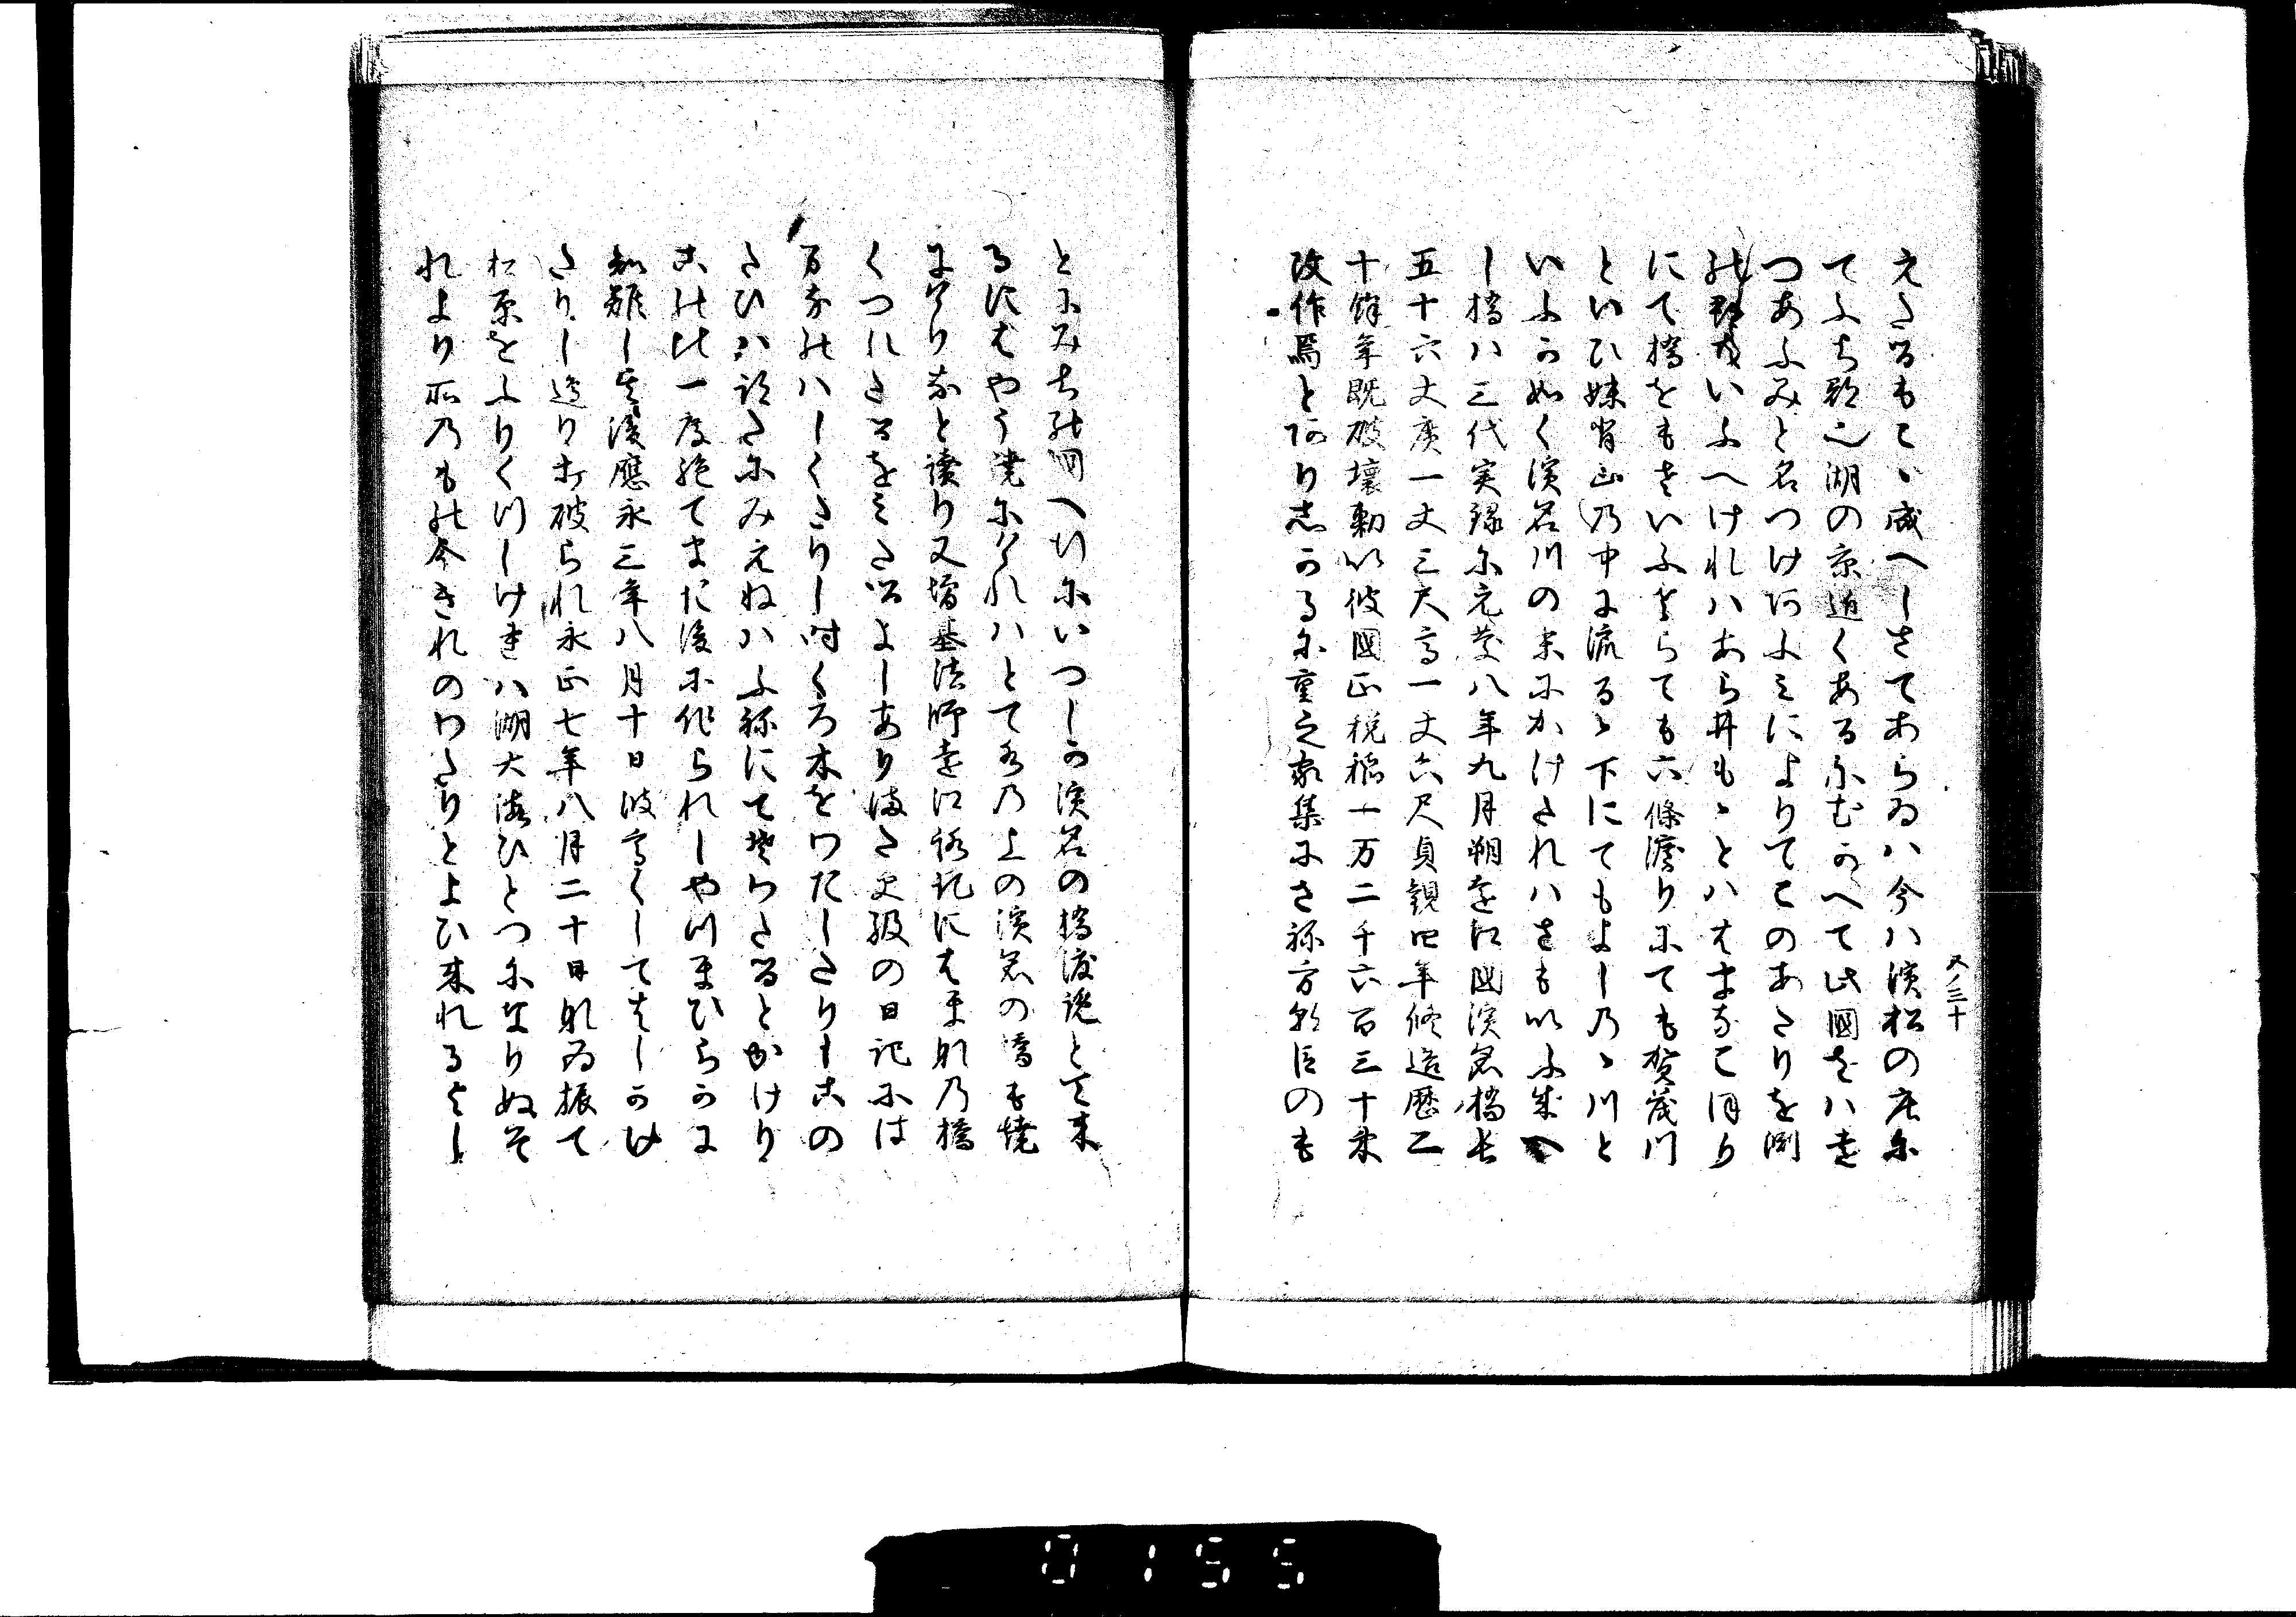 又ノ三十
えたるもこゝ成へしさてあらゐハ今ハ濱松の庄に
てふち郡也湖の京近くあるにむかへて此國をハ遠
つあふみと名つけあふみによりてこのあたりを渕
の郡をいふへけれハあら井もゝとハはまなこほり
にて橋をもそいふそらても六條渡りにても賀茂川
といひ妹背山の中に流るゝ下にてもよしのゝ川と
いふか如く濱名川の末にかけたれハさもいふ成へ
し橋ハ三代実録に元慶八年九月朔遠江國濱名橋長
五十六丈廣一丈三尺高一丈六尺貞観四年修造歴二
十餘年既破壊勅以彼國正税稲一万二千六百三十束
改作焉とあり志かるに重之家集にさ祢方朝臣のも
とにみちの國へ行にいつしか濱名の橋渡らんとて来
るにはやう焼にけれハとて水の上の濱名の橋も焼
にけりなと讀り又増基法師遠江紀にはま名の橋
くつれたるをミたるよしあり满た更級の日記には
万なのハしくたりし時くろ木をわたしたりしこの
たひハ跡たにみえねハふ祢にて渡らたるとかけり
其の比一度絶てまた後に作られしや川まひらかに
知難し其後應永三年八月十日波高くしてはしかひ
たりし邉り打破られ永正七年八月二十日地ゐ振て
松原をふりくつしけれハ湖大海ひとつになりぬそ
れより所のもの今きれのわたりとよひ来れるよし